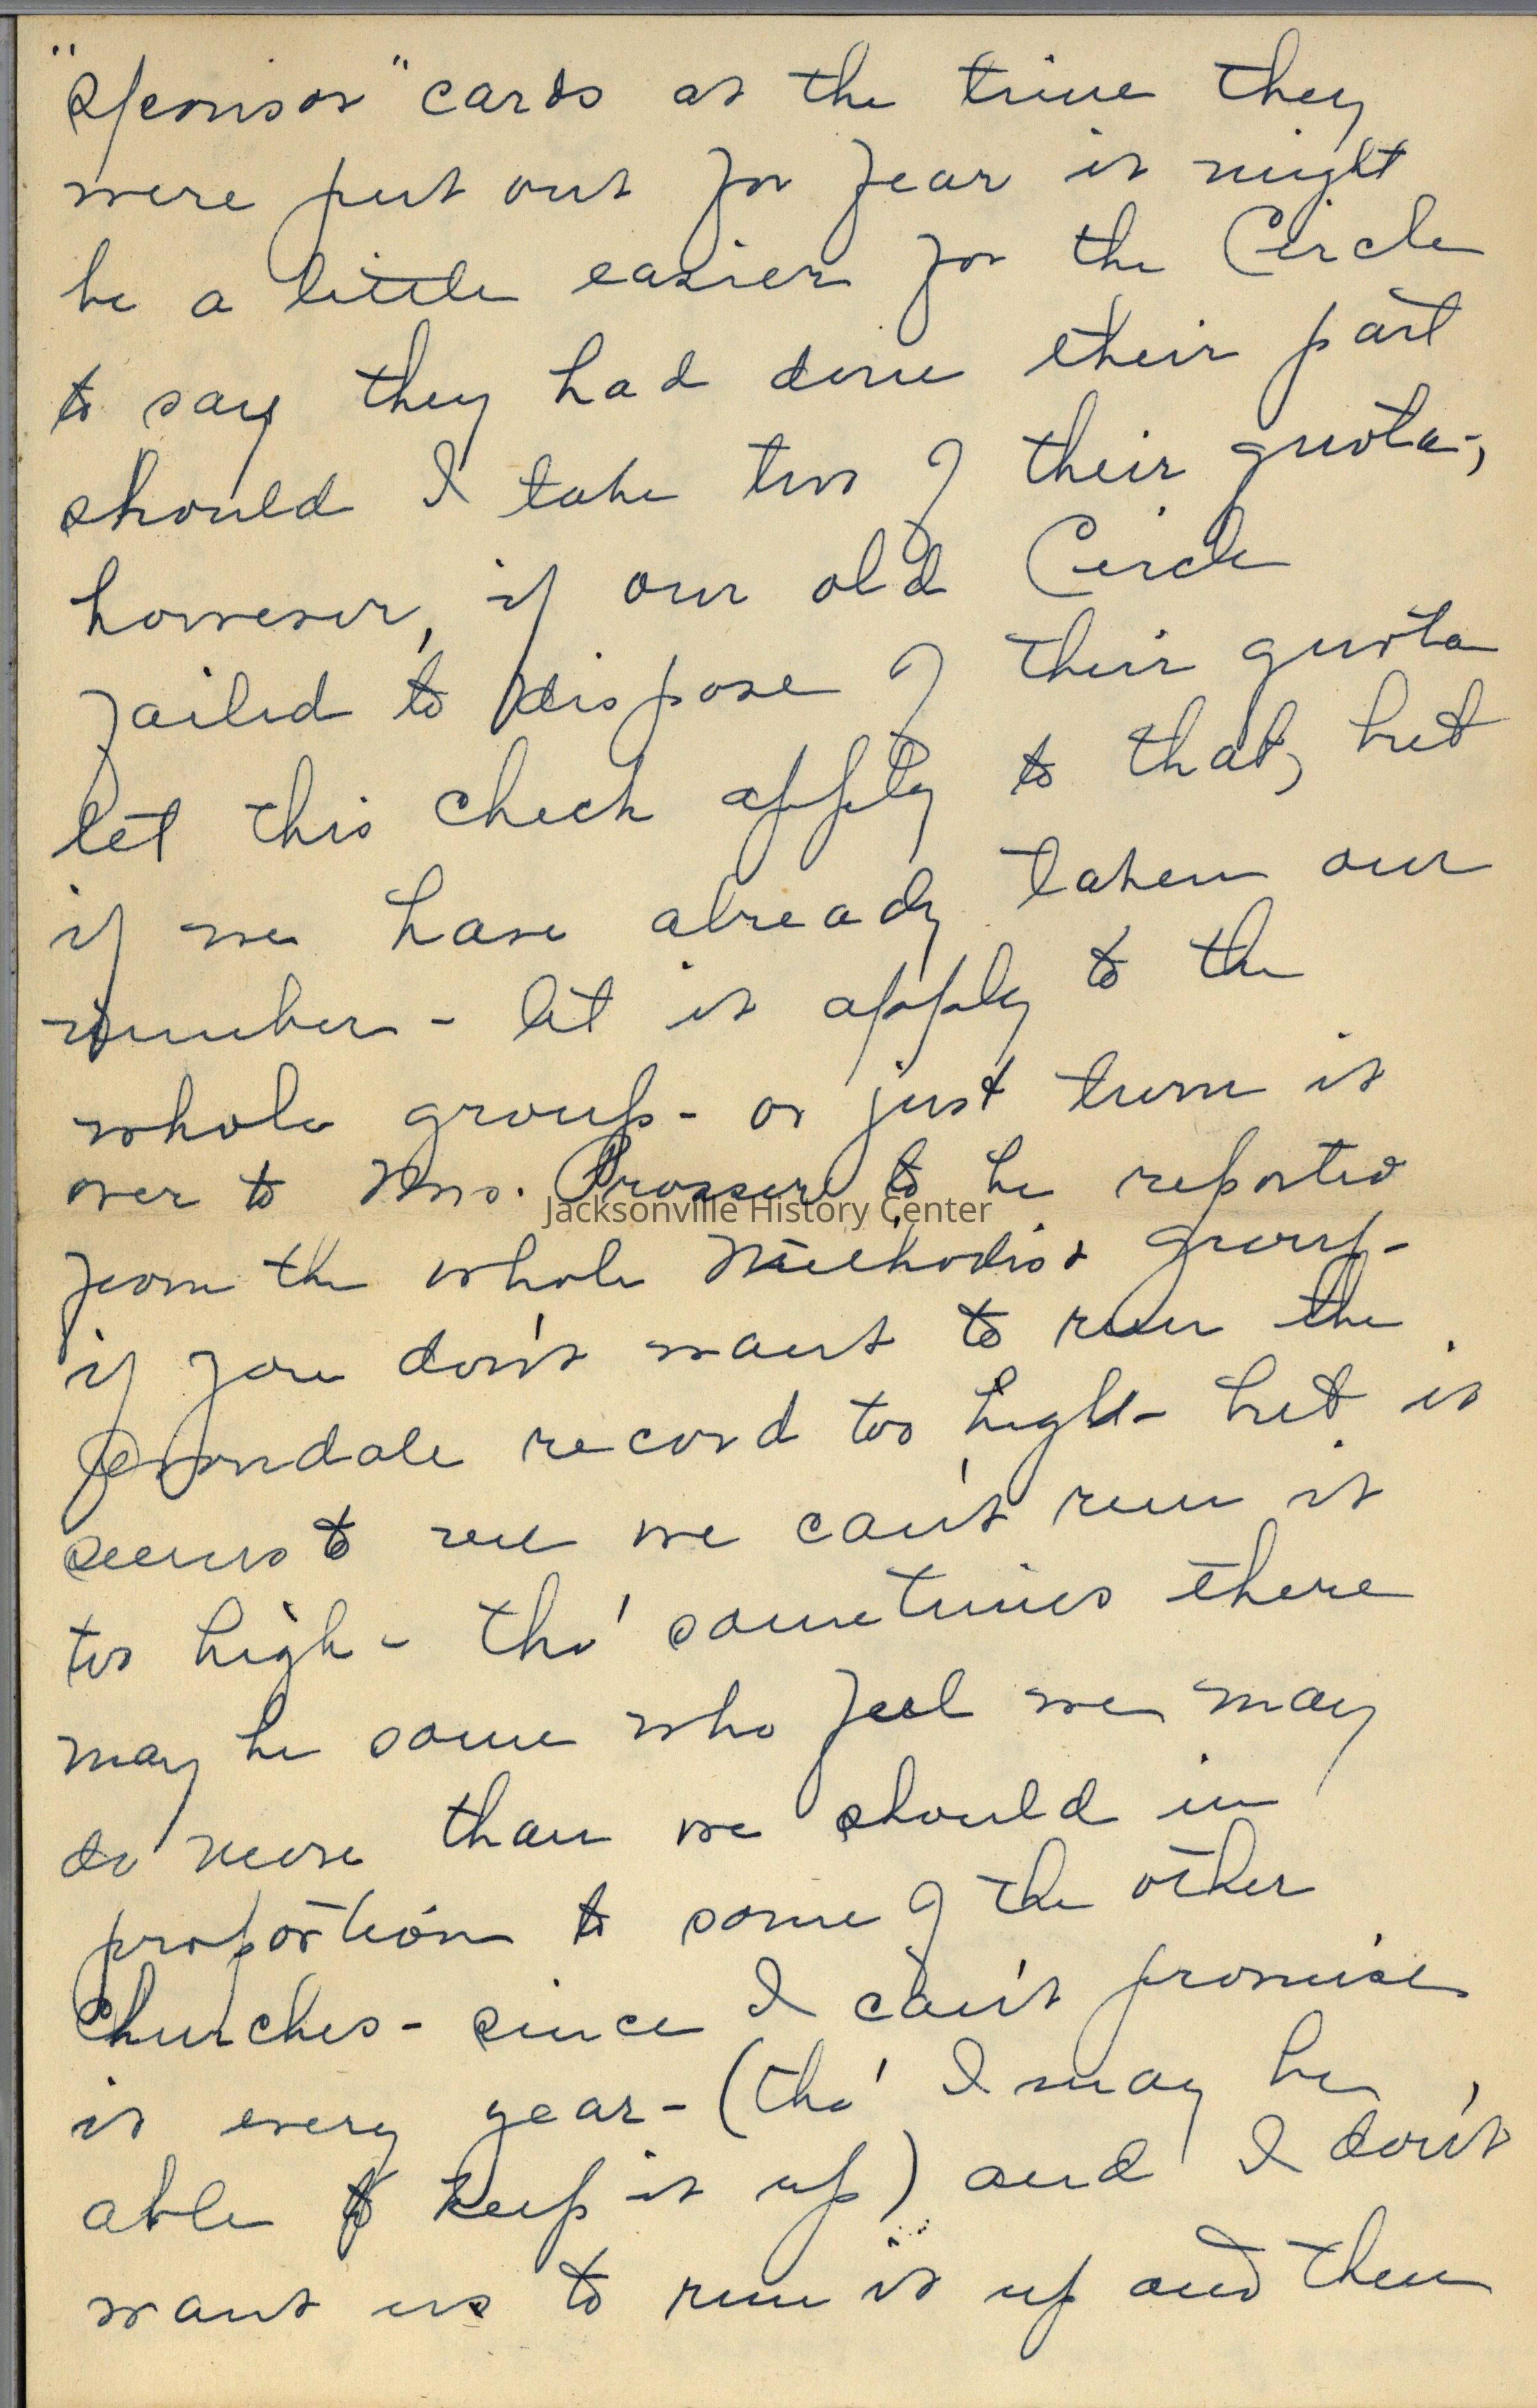 "Sponsor" cards at the time they
were put out for fear it might
be a little easier for the Circle
to say they had done their part
should I take two of their quota;
however, if our old Circle
failed to dispose of their quota
let this check apply to that, but
if we have already taken our
number - let it apply to the
whole group - or just turn it
over to Mrs. Prosser to be reported
Jacksonville History Center
from the whole Methodist group -
if you don't want to run the
Avondale record too high - but it
seems to me we can't run it
too high - tho' sometimes there
may be some who feel we may
do more than we should in
proportion to some of the other
Churches - since I can't promise
it every year - (tho' I may be
able to keep it up) and I don't
want us to run it up and then